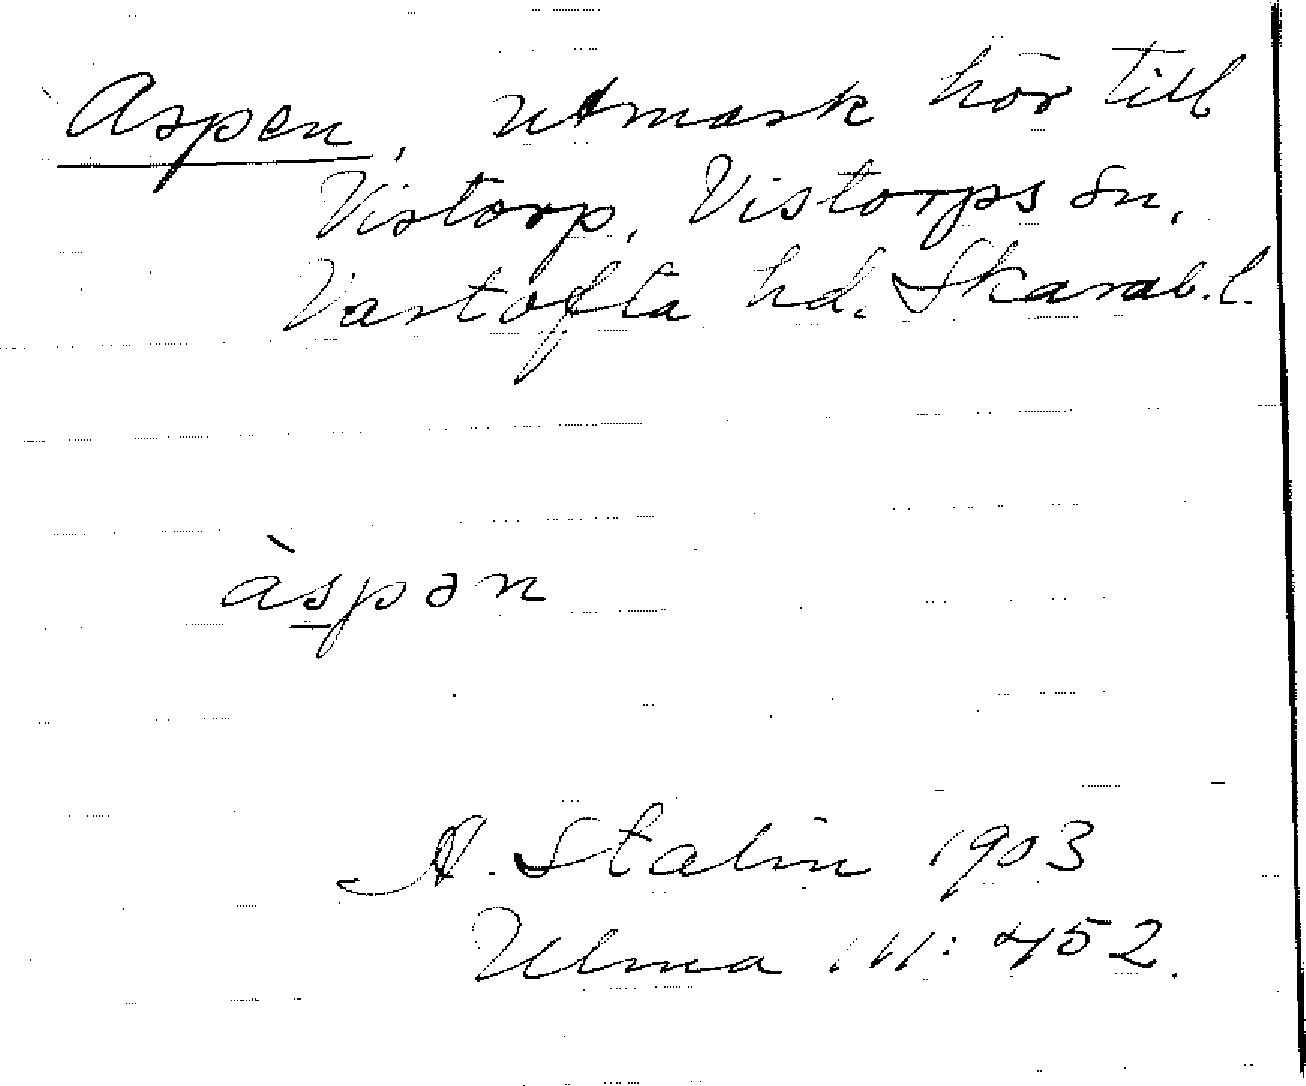 Aspen, utmark hör till
Vistorp, Vistorps sn,
Vartofta hd. Skarab. l.
àspən
A. Stalin 1903
Ulma 111: 452.